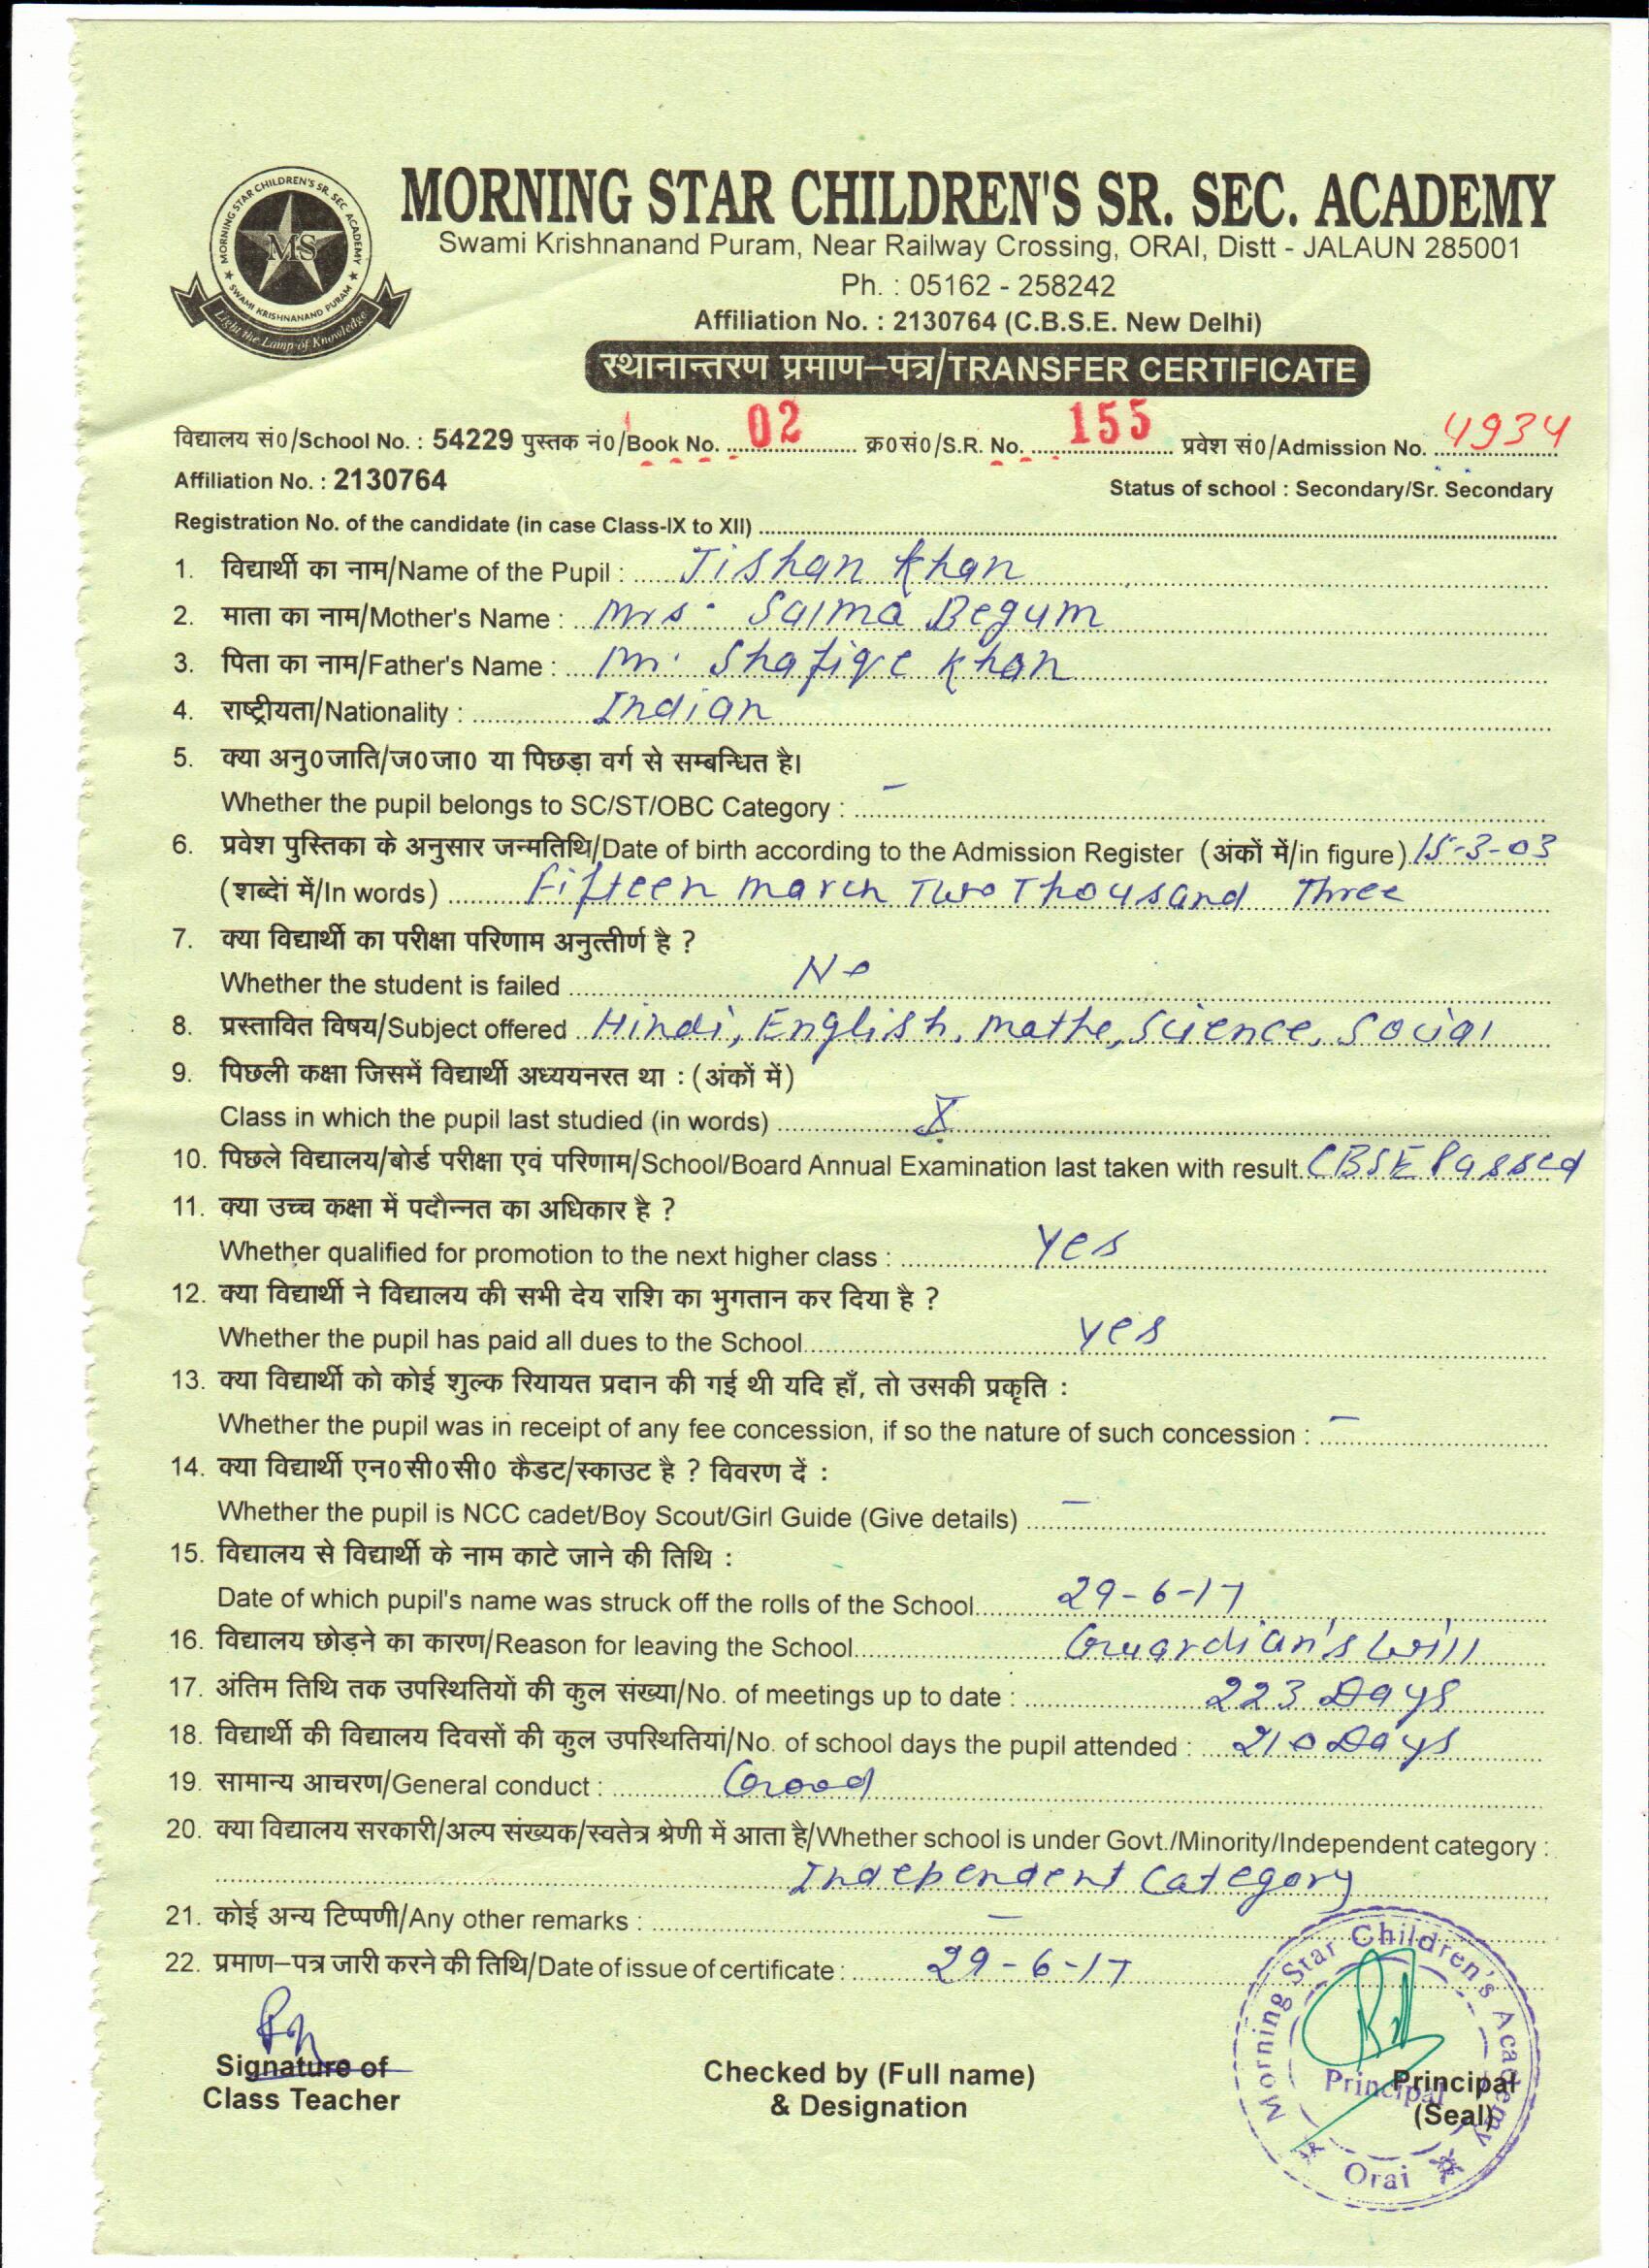 MORNING STAR CHILDREN'S SR. SEC. ACADEMY
MORNING STAR CHILDREN'S SR. SEC. ACADEMY
MS
SWAMI KRISHNANAND PURAM
Light the Lamp of Knowledge
Swami Krishnanand Puram, Near Railway Crossing, ORAI, Distt - JALAUN 285001
Ph. : 05162 - 258242
Affiliation No. : 2130764 (C.B.S.E. New Delhi)
स्थानान्तरण प्रमाण–पत्र/TRANSFER CERTIFICATE
विद्यालय सं0/School No. : 54229 पुस्तक नं0/Book No. 02 क्र0सं0/S.R. No. 155 प्रवेश सं0/Admission No. 4934
Affiliation No. : 2130764 Status of school : Secondary/Sr. Secondary
Registration No. of the candidate (in case Class-IX to XII)
1. विद्यार्थी का नाम/Name of the Pupil : Jishan Khan
2. माता का नाम/Mother's Name : Mrs. Salma Begum
3. पिता का नाम/Father's Name : Mr. Shafique Khan
4. राष्ट्रीयता/Nationality : Indian
5. क्या अनु0जाति/ज0जा0 या पिछड़ा वर्ग से सम्बन्धित है।
Whether the pupil belongs to SC/ST/OBC Category : –
6. प्रवेश पुस्तिका के अनुसार जन्मतिथि/Date of birth according to the Admission Register (अंकों में/in figure) 15-3-03
(शब्दों में/In words) Fifteen march Two Thousand Three
7. क्या विद्यार्थी का परीक्षा परिणाम अनुत्तीर्ण है ?
Whether the student is failed No
8. प्रस्तावित विषय/Subject offered Hindi, English, Maths, Science, Social
9. पिछली कक्षा जिसमें विद्यार्थी अध्ययनरत था : (अंकों में)
Class in which the pupil last studied (in words) X
10. पिछले विद्यालय/बोर्ड परीक्षा एवं परिणाम/School/Board Annual Examination last taken with result. CBSE Passed
11. क्या उच्च कक्षा में पदौन्नत का अधिकार है ?
Whether qualified for promotion to the next higher class : Yes
12. क्या विद्यार्थी ने विद्यालय की सभी देय राशि का भुगतान कर दिया है ?
Whether the pupil has paid all dues to the School Yes
13. क्या विद्यार्थी को कोई शुल्क रियायत प्रदान की गई थी यदि हाँ, तो उसकी प्रकृति :
Whether the pupil was in receipt of any fee concession, if so the nature of such concession : –
14. क्या विद्यार्थी एन0सी0सी0 कैडट/स्काउट है ? विवरण दें :
Whether the pupil is NCC cadet/Boy Scout/Girl Guide (Give details) –
15. विद्यालय से विद्यार्थी के नाम काटे जाने की तिथि :
Date of which pupil's name was struck off the rolls of the School 29-6-17
16. विद्यालय छोड़ने का कारण/Reason for leaving the School Guardian's Will
17. अंतिम तिथि तक उपस्थितियों की कुल संख्या/No. of meetings up to date : 223 Days
18. विद्यार्थी की विद्यालय दिवसों की कुल उपस्थितियां/No. of school days the pupil attended : 210 Days
19. सामान्य आचरण/General conduct : Good
20. क्या विद्यालय सरकारी/अल्प संख्यक/स्वतेत्र श्रेणी में आता है/Whether school is under Govt./Minority/Independent category :
Independent Category
21. कोई अन्य टिप्पणी/Any other remarks : –
22. प्रमाण–पत्र जारी करने की तिथि/Date of issue of certificate : 29-6-17
Signature of
Class Teacher
Checked by (Full name)
& Designation
Principal
(Seal)
Morning Star Children's Academy
Principal
Orai